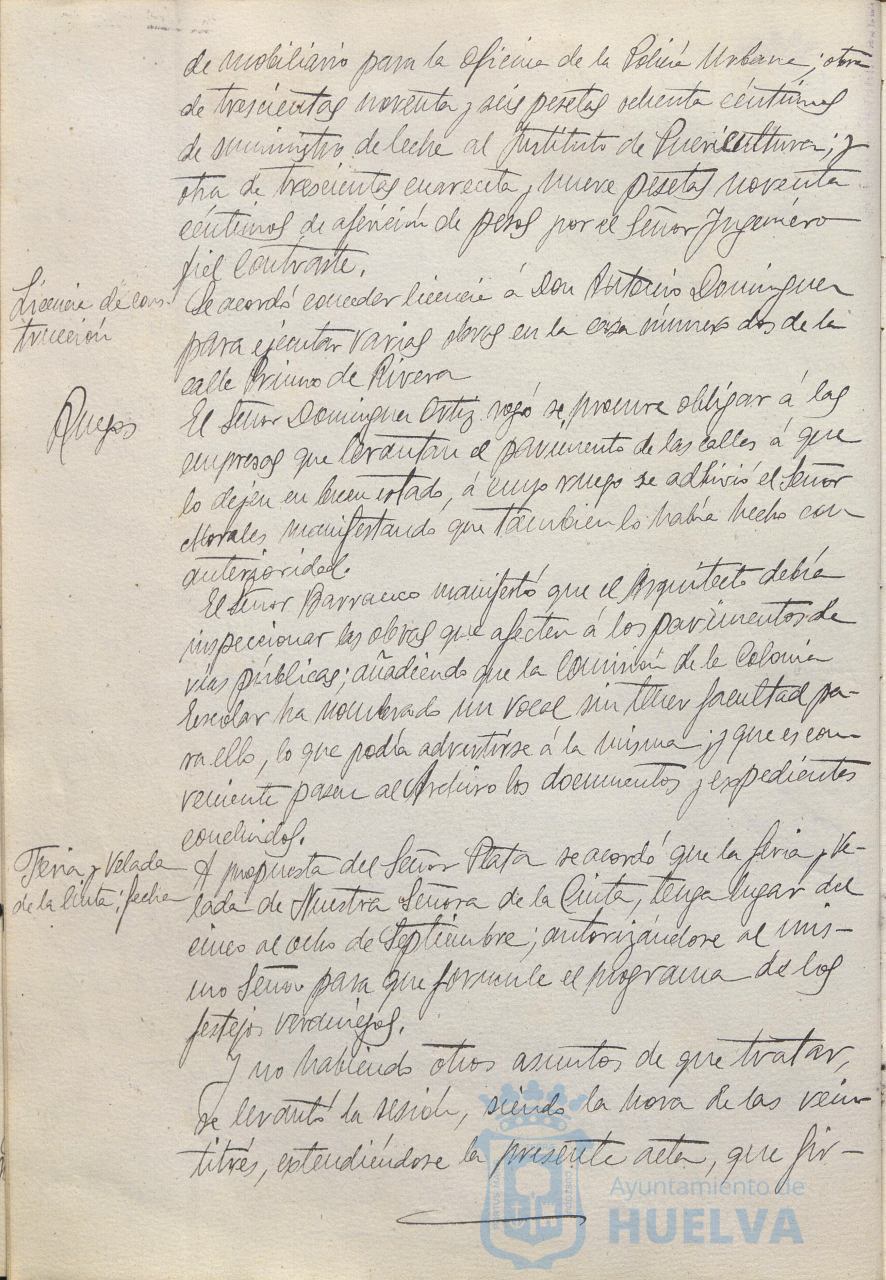 de mobiliario para la oficina de la Policía Urbana; otra
de trescientas noventa y seis pesetas ochenta céntimos
de suministro de leche al Instituto de Puericultura; y
otra de trescientas cuarenta y nueve pesetas noventa
céntimos de aferición de pesas por el Señor Ingeniero
fiel Contraste.
Licencia de cons-
trucción
Se acordó conceder licencia á Don Antonio Dominguez
para ejecutar varias obras en la casa número dos de la
calle Primo de Rivera
Ruegos
El Señor Dominguez Ortiz rogó se procure obligar á las
empresas que levantan el pavimento de las calles á que
lo dejen en buen estado, á cuyo ruego se adhirió el Señor
Morales manifestando que tambien lo había hecho con
anterioridad.
El Señor Barranco manifestó que el Arquitecto debía
inspeccionar las obras que afecten á los pavimentos de
vías públicas; añadiendo que la Comisión de la Colonia
Escolar ha nombrado un vocal sin tener facultad pa-
ra ello, lo que podía advertirse á la misma; y que es con-
veniente pasen al Archivo los documentos y expedientes
concluidos.
Feria y Velada
de la Cinta; fecha
A propuesta del Señor Plata se acordó que la feria y Ve-
lada de Nuestra Señora de la Cinta, tenga lugar del
cinco al ocho de Septiembre; autorizándose al mis-
mo Señor para que formule el programa de los
festejos verdinegos.
Y no habiendo otros asuntos de que tratar,
se levantó la sesión, siendo la hora de las vein-
titrés, extendiéndose la presente acta, que fir-
Ayuntamiento de
HUELVA